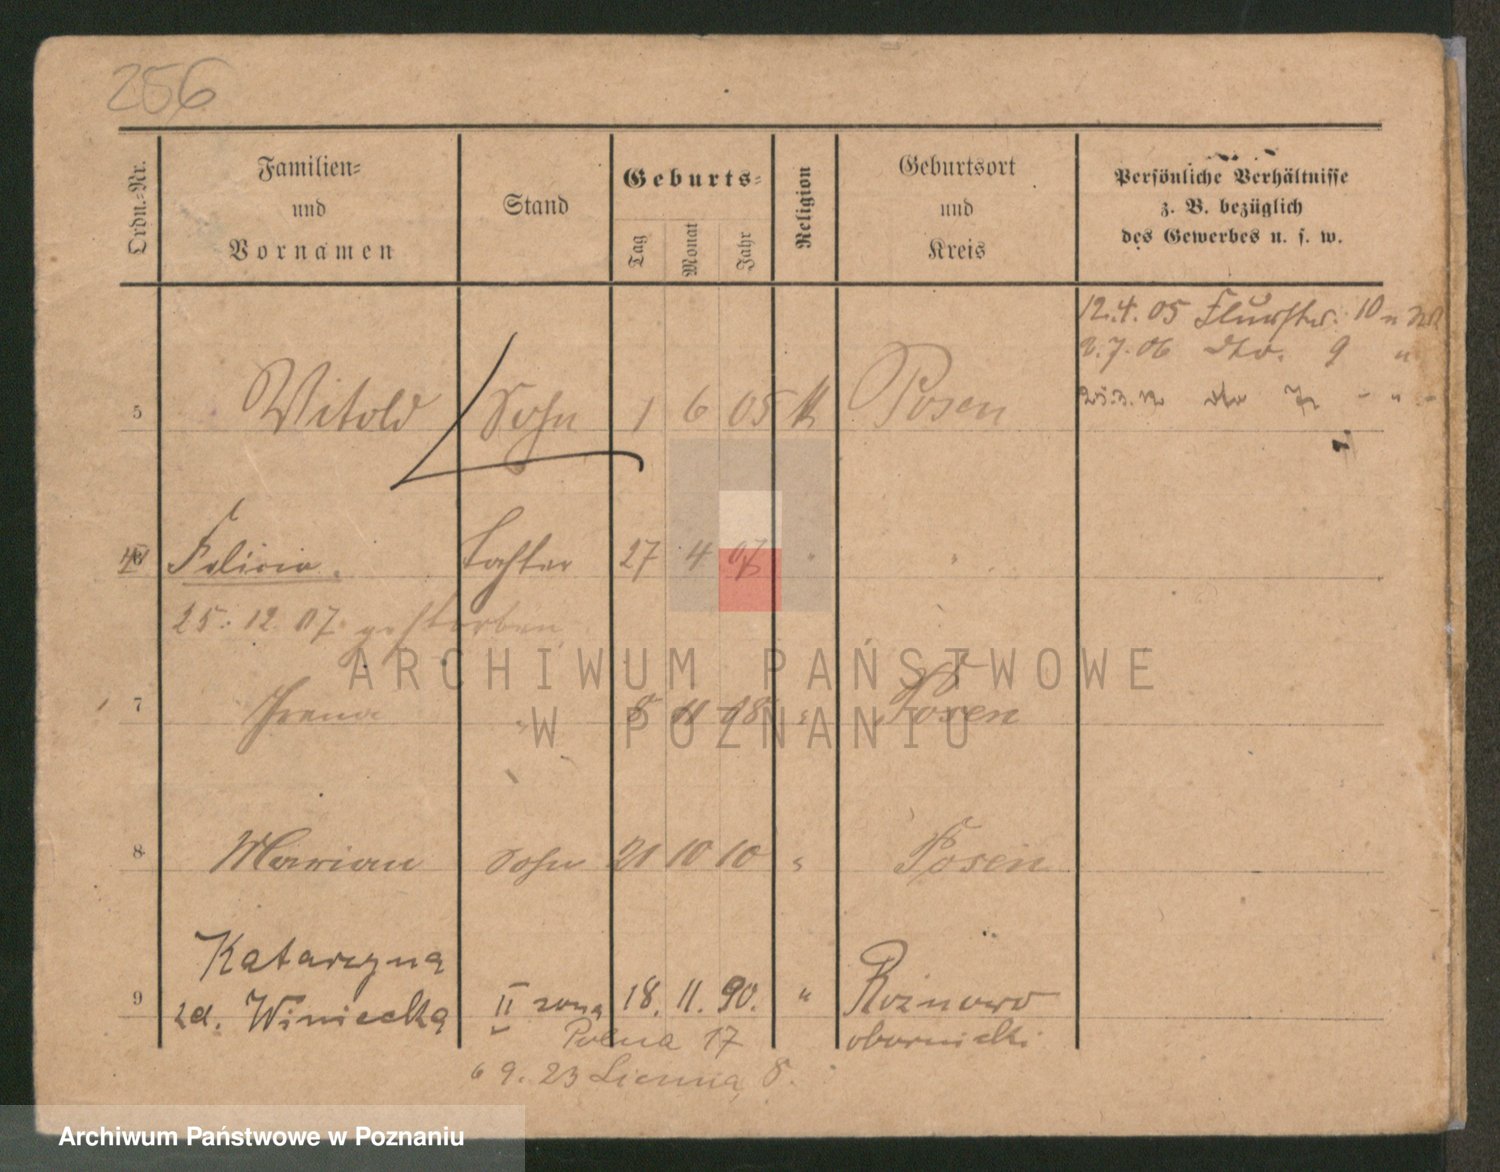 256
Ordn.-Nr.
Familien-
und
Vornamen
Stand
Geburts-
Tag
Monat
Jahr
Religion
Geburtsort
und
Kreis
Persönliche Verhältnisse
z. B. bezüglich
des Gewerbes u. s. w.
12.4.05 Flurstr. 10
2.7.06 dto. 9 "
5 Witold Sohn 1 6 05 K Posen
Felicia. Tochter 27 4 07 " "
25.12.07 gestorben
7 Irena " 8 11 08 " Posen
8 Marian Sohn 21 10 10 " Posen
Katarzyna
9 zd. Winiecka II żona 18. 11. 90. " Rożnowo
Polna 17 obornicki
6 9. 23 Sienna 8.
ARCHIWUM PAŃSTWOWE
W POZNANIU
Archiwum Państwowe w Poznaniu